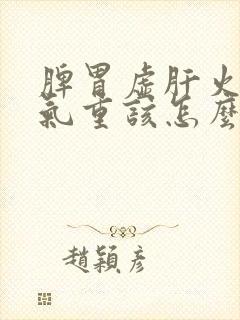 脾胃虛肝火
氣重該怎麼
趙穎彥